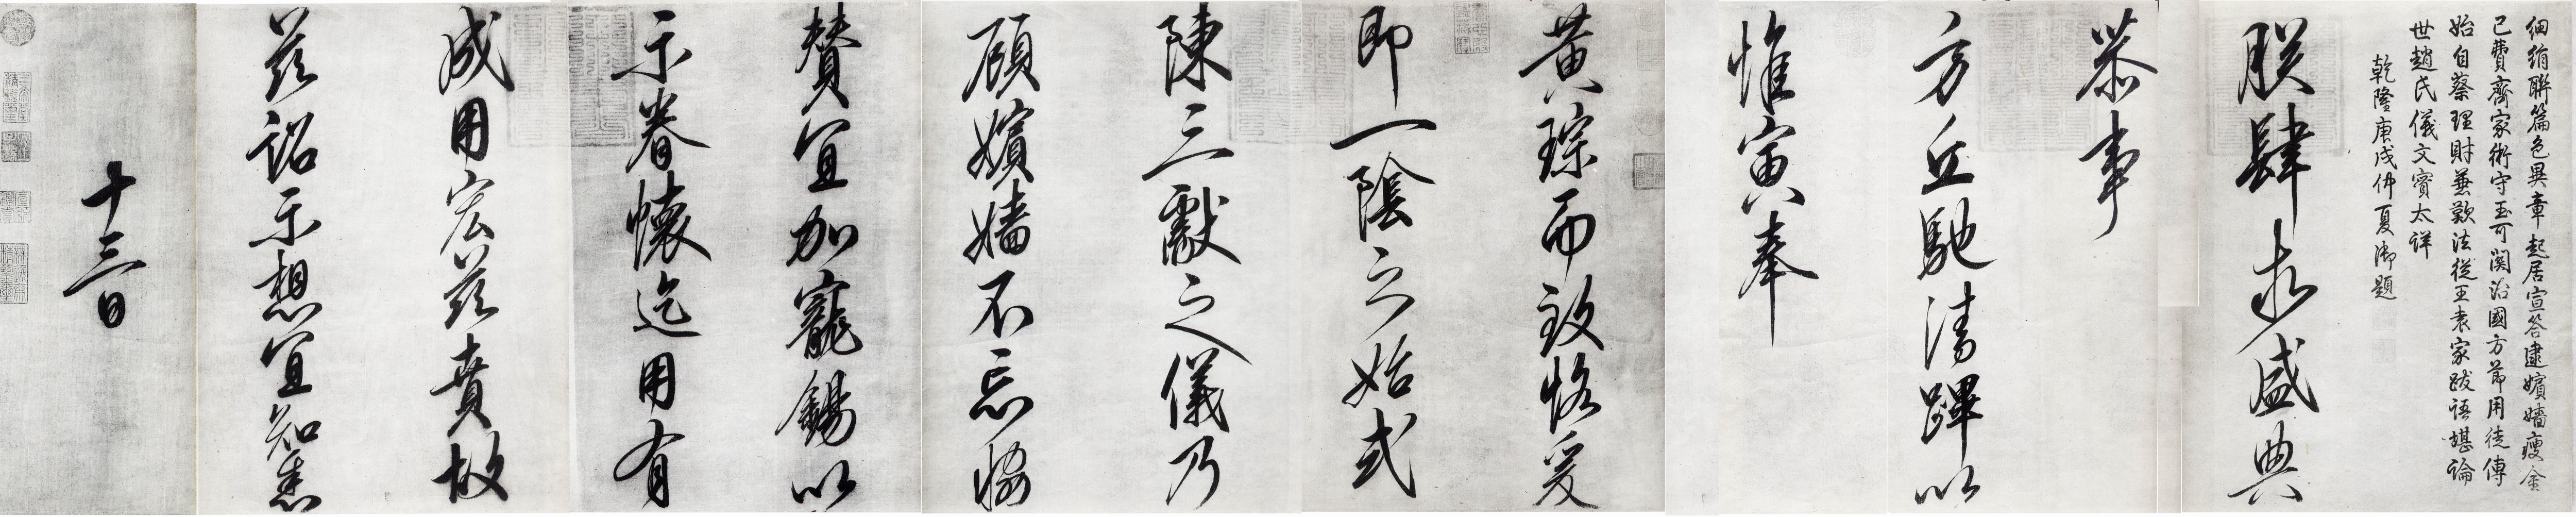 細絹聯篇色異章起居宣答逮嬪嬙瘦金
已費齊家術守玉可関治國方節用徒傳
始自蔡理財兼歎法從王袁家跋語堪論
世趙氏儀文實太詳
乾隆庚戌仲夏御題
朕肆求盛典
恭事
方丘馳清蹕以
惟寅奉
黃琮而致恪爰
即一陰之始式
陳三獻之儀乃
顧嬪嬙不忘恊
贊宜加寵錫以
示眷懷迄用有
成用宏茲賁故
茲詔示想宜知悉
十三日